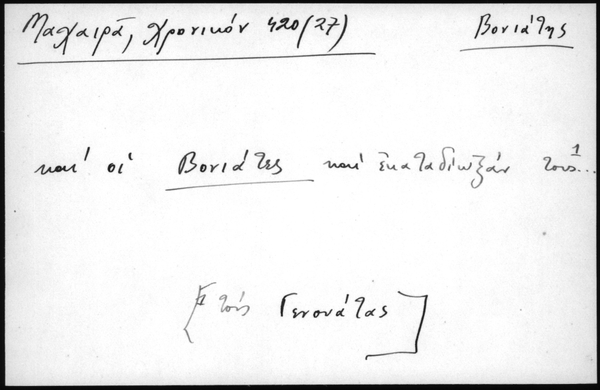 Μαχαιρᾶ, Χρονικόν 420 (27) Βονιάτης
καὶ οἱ Βονιάτες καὶ ἐκαταδιῶξάν τους¹...
[¹ τοὺς Γενουάτας]